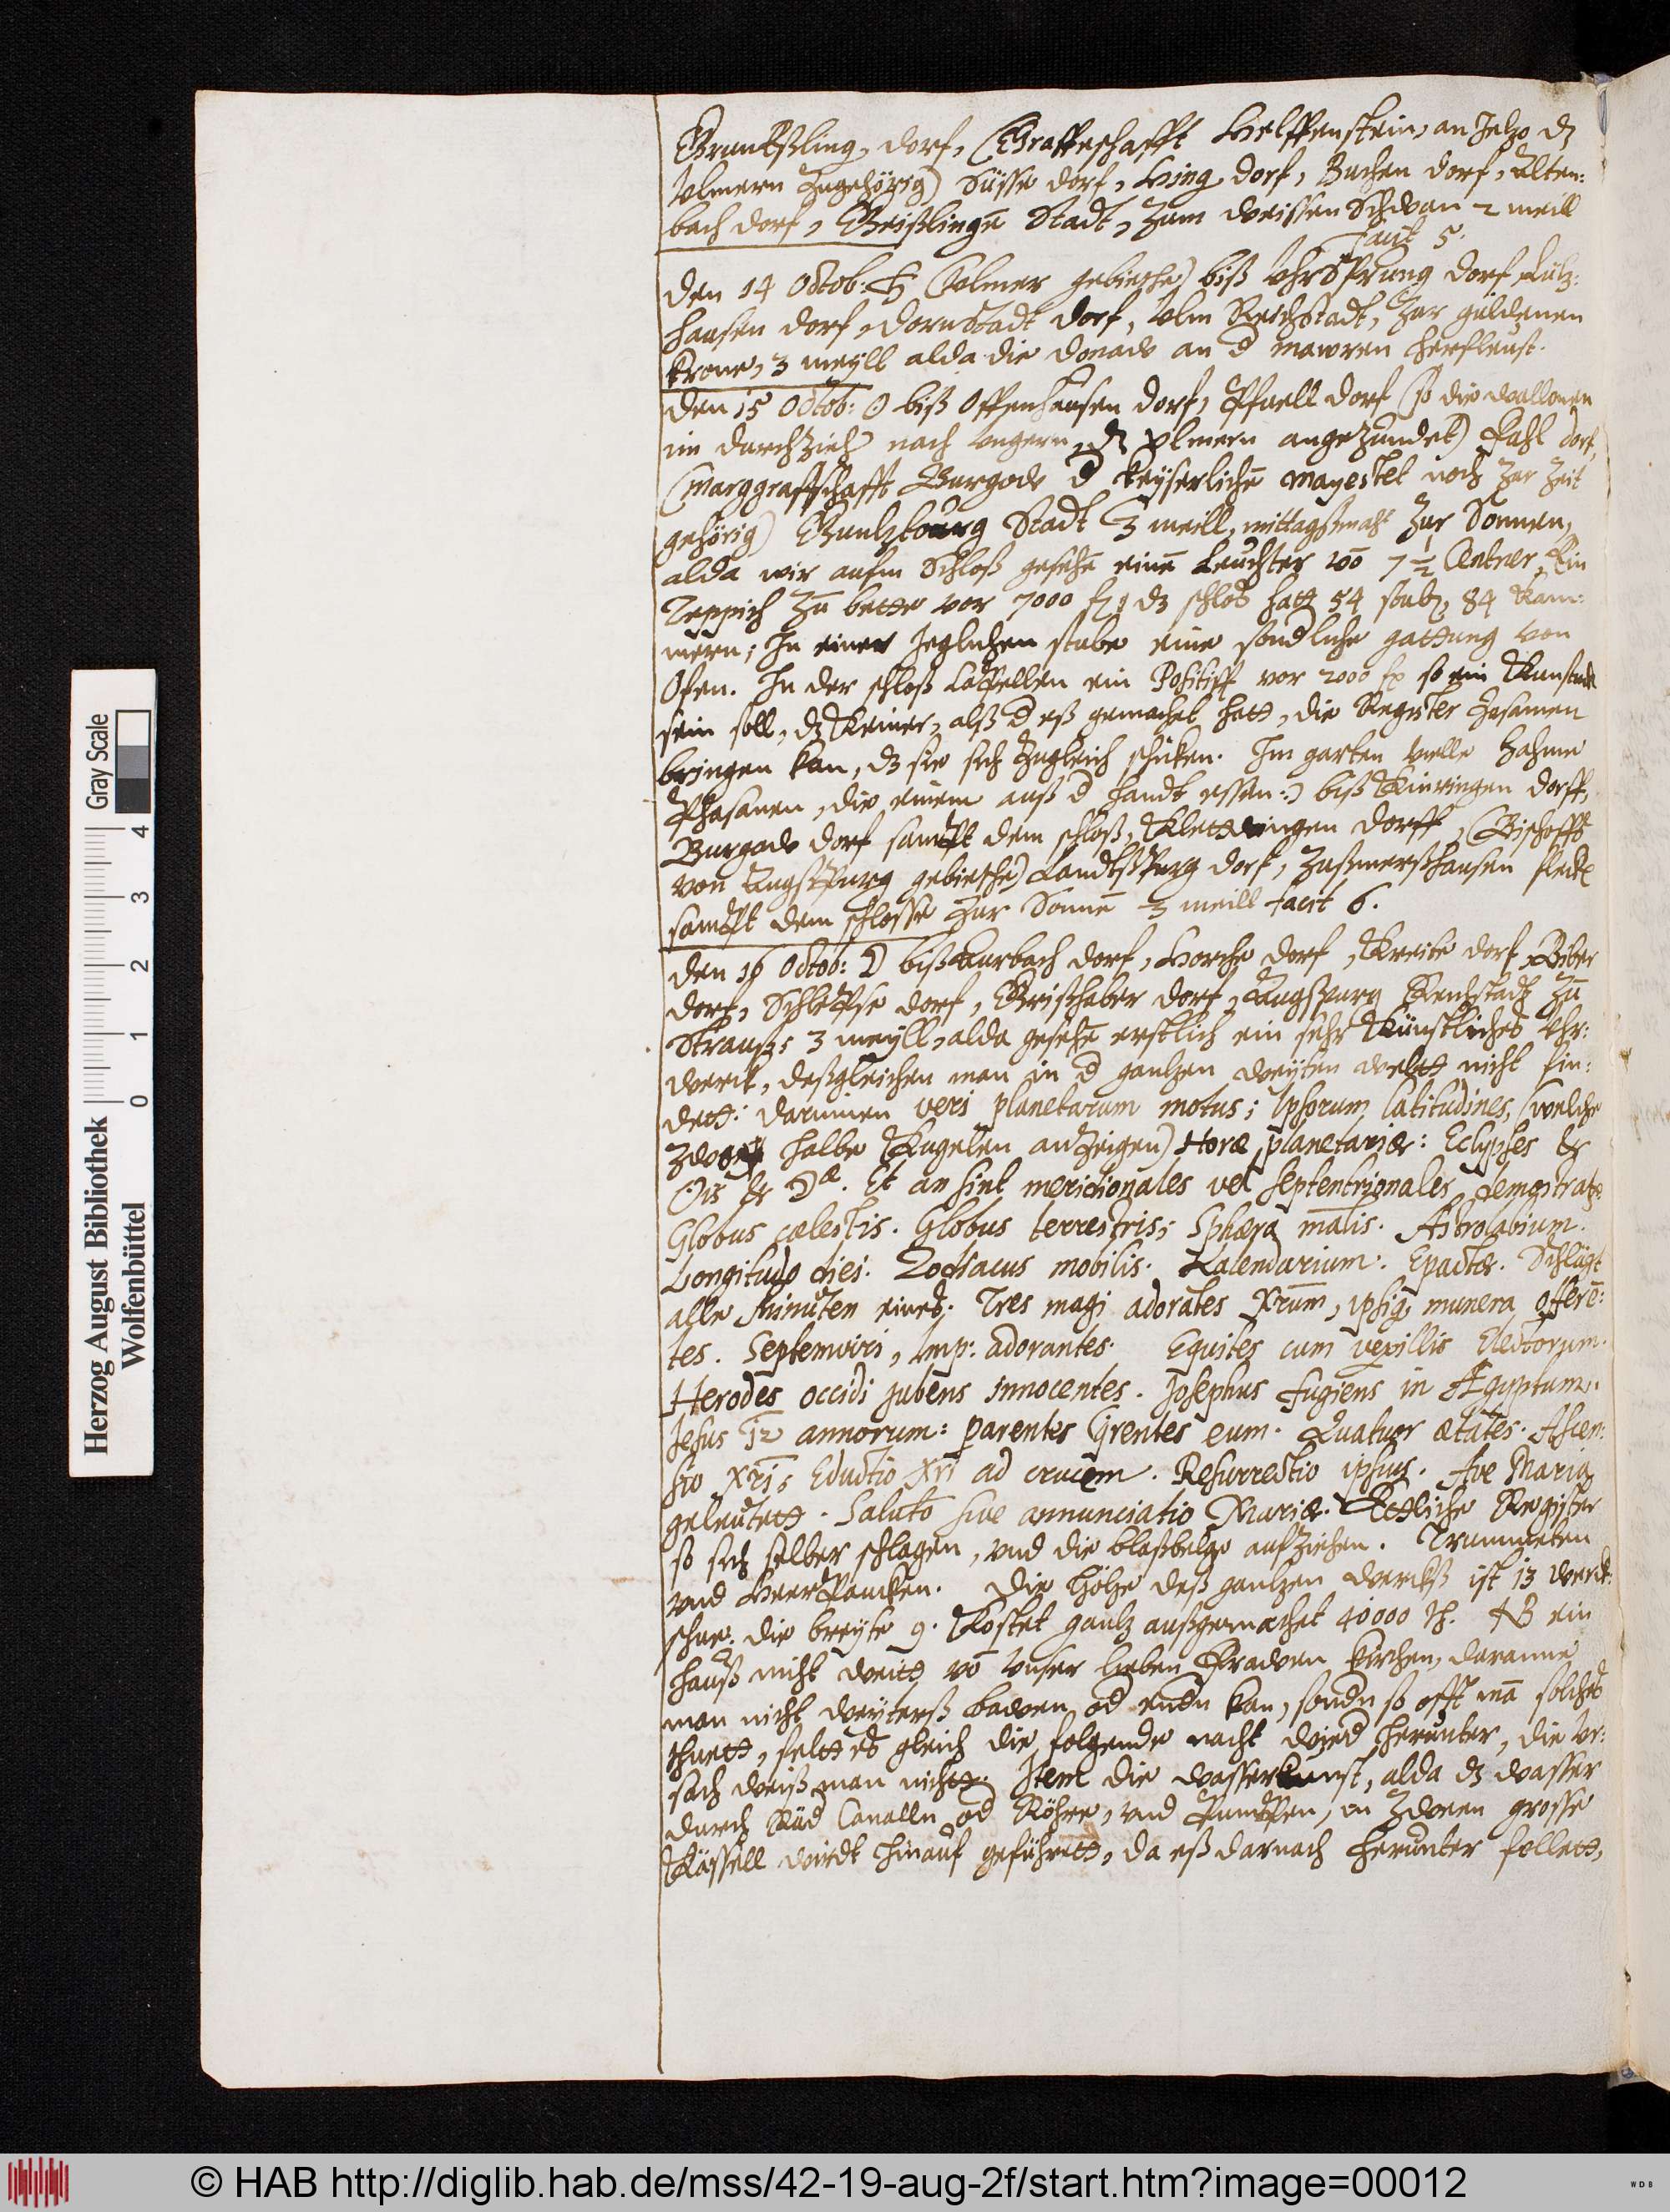 dorf, (Graffeschafft Helffenstein, an Jetzo dz
Ulmern Zugehörig) Süsse dorf, Ging dorf, Buchen dorf, Alten:
bach dorf, Geißlingē Stadt, Zum weissen Schwan 2 meill
facit 5.
den 14 Octob: ♄ (Ulmer gebiethe) biß Uhrsprung dorf,
hausen dorf, dornstadt dorf, Ulm Reichstadt, Zur güldenen
krone, 3 meyll alda die donaw an d mawren herfleust.
den 15 Octob: ☉ biß Offenhausen dorf, Pfuell dorf (so die wallonen
im durchziehē nach Ungern, dz Ulmern angezündet) Fahl dorf,
(Marggraffschafft Burgow d keyserlichē mayestet noch zur Zeit
gehörig) Guntzbourg Stadt 3 meill, mittagßmahl Zur Sonnen,
alda wir aufm Schloß gesehē einē Leuchter vō 7 1/2 Centner, Ein
Teppich Zū bette vor 7000 fl; dz schlos hatt 54 stub, 84 Kam:
mern; In einer Jeglichen stube eine sondliche gattung von
Ofen. In der schloß Cappellen ein Positiff vor 2000 fl so ein Kunststuck
sein soll, dz Keiner, alß d eß gemachet hatt, die Register Zusamen
bringen kan, dz sie sich Zugleich schicken. Im garten vielle Zahme
Phasanen, die einem auß d handt essen:) biß Kinringen dorff,
Burgow dorf sampt dem schloß, Klettwingen dorff, (Bischoffs
von Augspurg gebiethe) Landtßpurg dorf, Zusmerßhausen fleck
sampt dem schlosse Zur Sonnē 3 meill facit 6.
den 16 Octob: ☽ biß Aurbach dorf, Horche dorf, Kreite dorf, Biber
dorf, Schlepse dorf, Grishaber dorf, Augspurg Reichstadt Zū
Strauß; 3 meyll, alda gesehē erstlich ein sehr Künstliches Uhr:
werck, deßgleichen man in d gantzen weyten weltt nicht fin:
dett: darinnen veri planetarum motus; Ipsorum latitudines, (welche
Zwo halbe Kugelen anZeigen) Horæ planetariæ: Eclypses &
☉is & ☽æ. Et an sint meridionales vel septentrionales
Globus cælestis. Globus terrestris; Sphæra mālis. Astrolabium.
Longitudo diei. Zodiacus mobilis. Kalendarium. Epactæ. Schlägt
alle Minuten eines. Tres magi adorātes Xrūm, ipsiq; munera offerē:
tes. Septemviri, Imp: adorantes. Equites cum vexillis Electorum.
Herodes occidi jubens innocentes. Josephus fugiens in Ægyptum.
Jesus 12 annorum: parentes q̄rentes eum. Quatuor ætates. Ascen:
sio Xri; Eductio Xri ad crucem. Resurrectio ipsius. Ave Maria
geleutett. Salutō sive annunciatio Mariæ. Ettliche Register
so sich selber schlagen, und die blaßbelge aufziehen. Trummeten
und Heerpaucken. Die Höhe deß gantzen wercks ist 13 werck:
schue. die breyte 9. Kostet gantz außgemachet 40000 th. NB ein
hauß nicht weitt vō Unser lieben Frawen kirchen, daranne
man nicht weyterß bawen od endn kan, sondn so offt mā solches
thuett, fellt es gleich die folgende nacht wied herunter, die Ur:
sach weiß man nicht. Item die wasserkunst, alda dz wasser
durch Räd Canalln od Röhre, und Pumppen, in Zween grosse
Kässell wirdt hinauf geführett, da eß darnach herunter fellett,
Gray Scale
Herzog August Bibliothek
Wolfenbüttel
0 1 2 3 4
© HAB http://diglib.hab.de/mss/42-19-aug-2f/start.htm?image=00012
WDB